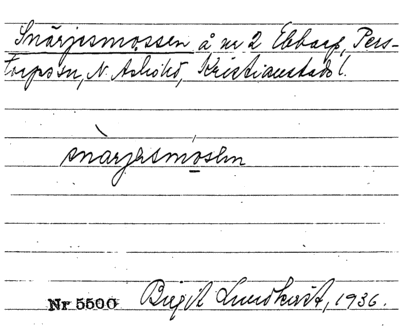 Snärjesmossen å nr 2 Ebbarp, Pers-
torps sn, N. Åsbo hd, Kristianstads l.
snärjesmosen
Nr 5500 Birgit Lundkvist, 1936.